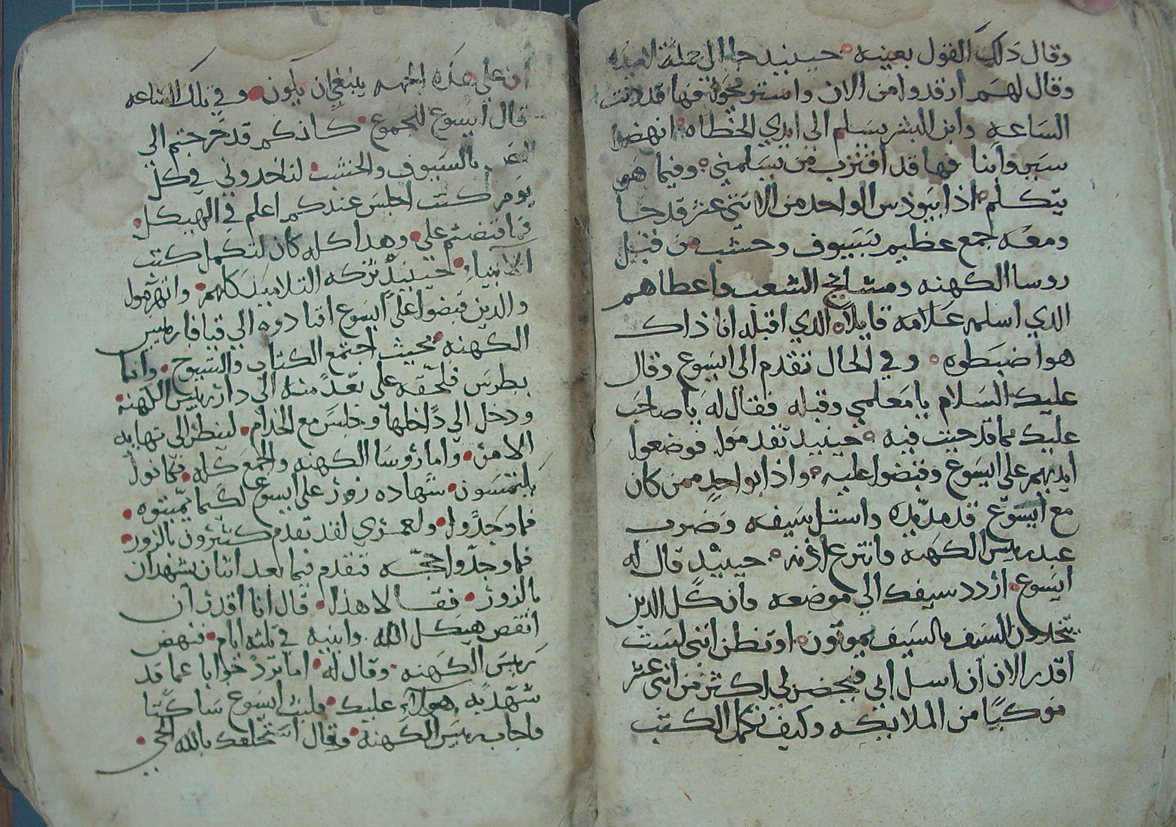 وقال ذلك القول بعينه حينيد جا الى تلاميده
وقال لهم ارقدوا من الان واستريحوا فها قد دنت
الساعه وابن البشر يسلم الى ايدي الخطاه انهضوا
سيروا بنا فها قد اقترب من يسلمني وفيما هو
يتكلم اذا بيودس الواحد من الاثني عشر قد جا
ومعه جمع عظيم بسيوف وخشب من قبل
روسا الكهنه ومشايخ الشعب واعطاهم
الذي اسلمه علامه قايلا الذي اقبله انا ذاك
هو اضبطوه وفي الحال تقدم الى ايسوع وقال
عليك السلام يا معلمي وقبله فقال له يا صاحب
عليك بما قد جيت فيه حينيد تقدموا فوضعوا
ايديهم على ايسوع وقبضوا عليه واذا بواحد ممن كان
مع ايسوع قد مد يده واستل سيفه وضرب
عبد ريس الكهنه وانتزع اذنه حينيد قال له
ايسوع اردد سيفك الى موضعه وان كل الدين
يتخدون السيف بالسيف يموتون او تظن انني لست
اقدر الان ان اسل ابي فيحضر لي اكثر من اثني عشر
موكبا من الملايكه وكيف تكمل الكتب
ان على هذه الجهه ينبغي ان يكون وفي تلك الساعه
قال ايسوع للجموع كانكم قد خرجتم الى
بالسيوف والخشب لتاخدوني في كل
يوم كنت اجلس عندكم اعلم في الهيكل
فما قبضتم علي وهدا كله كان لتكمل كتب
الانبياء حينيد تركه التلاميد كلهم وانهزموا
والدين قبضوا على ايسوع اقتادوه الى قيافا ريس
الكهنه بحيث اجتمع الكتاب والشيوخ واما
بطرس فلحقه على بعد منه الى دار ريس الكهنه
ودخل الى داخلها وجلس مع الخدام لينظر الى نهايه
الامر واما روسا الكهنه والجمع كله فكانوا
يلتمسون شهاده زور على ايسوع لكيما يميتوه
فما وجدوا ولعمري لقد تقدم كثيرون بالزور
فما وجدوا حجه فتقدم فيما بعد اثنان يشهدان
بالزور فقالا هذا قال انا اقدر ان
انقض هيكل الله وابنيه في ثلثه ايام فنهض
ريس الكهنه وقال له اما ترد جوابا عما قد
شهد به هولاء عليك فلبث ايسوع ساكتا
واجاب ريس الكهنه وقال استحلفك بالله الحي